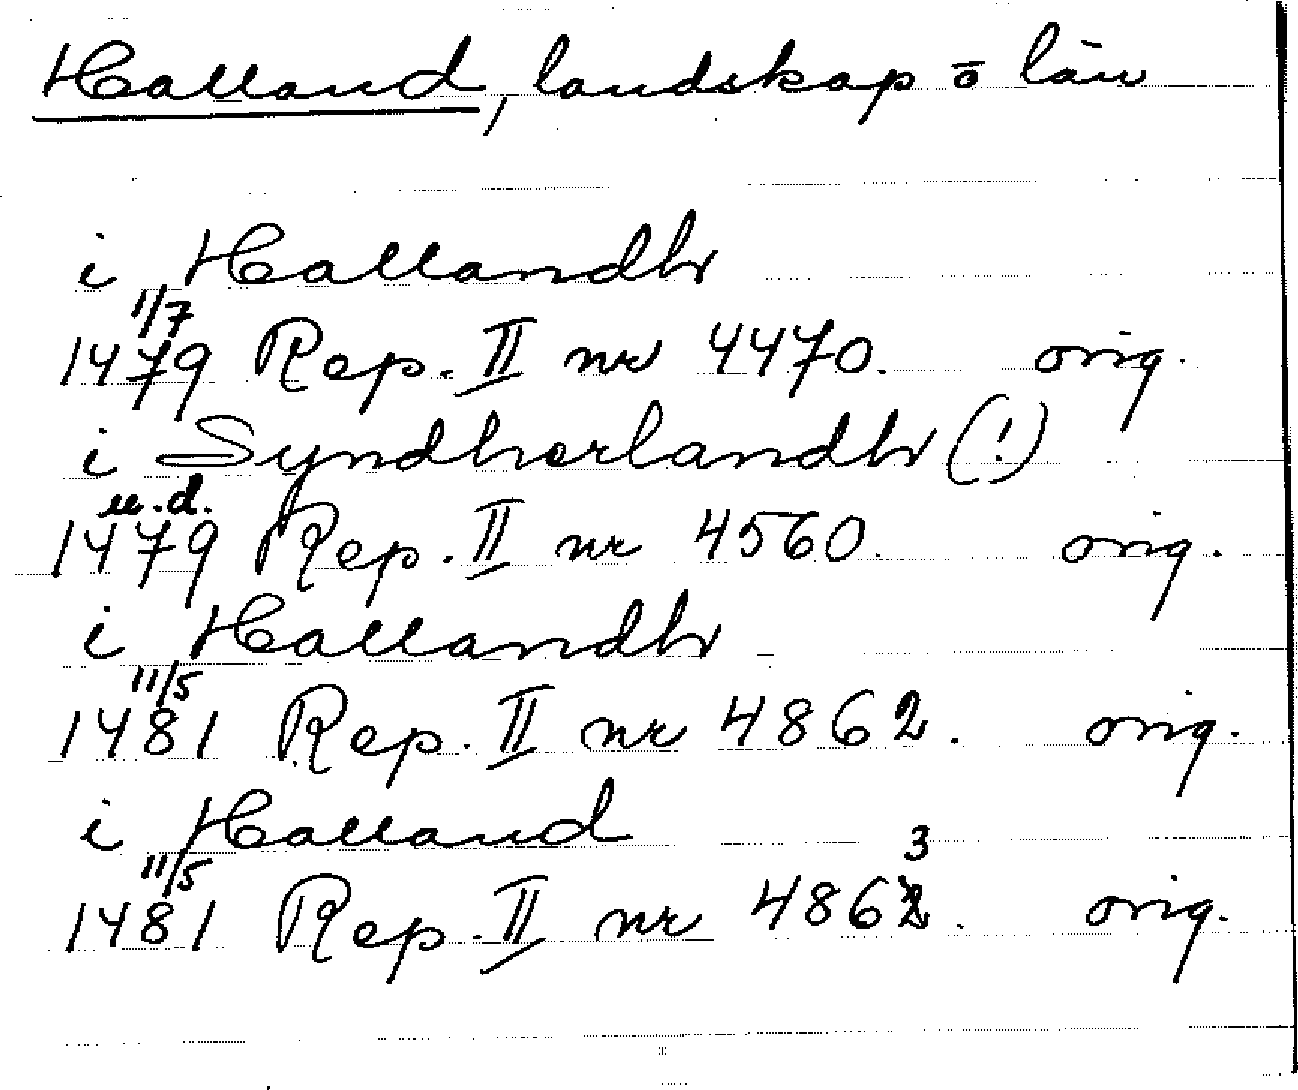 Halland, landskap o län
i Hallandh
1/7
1479 Rep. II nr 4470. orig.
i Syndherlandh (!)
u.d.
1479 Rep. II nr 4560. orig.
i Hallandh
11/5
1481 Rep. II nr 4862. orig.
i Halland
11/5 3
1481 Rep. II nr 4862. orig.